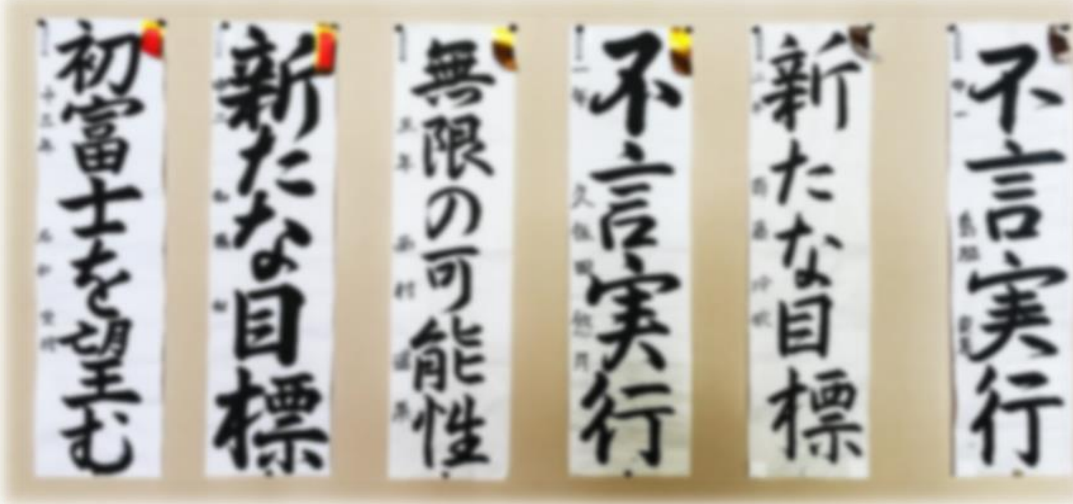 初富士を望む
新たな目標
無限の可能性
不言実行
新たな目標
不言実行